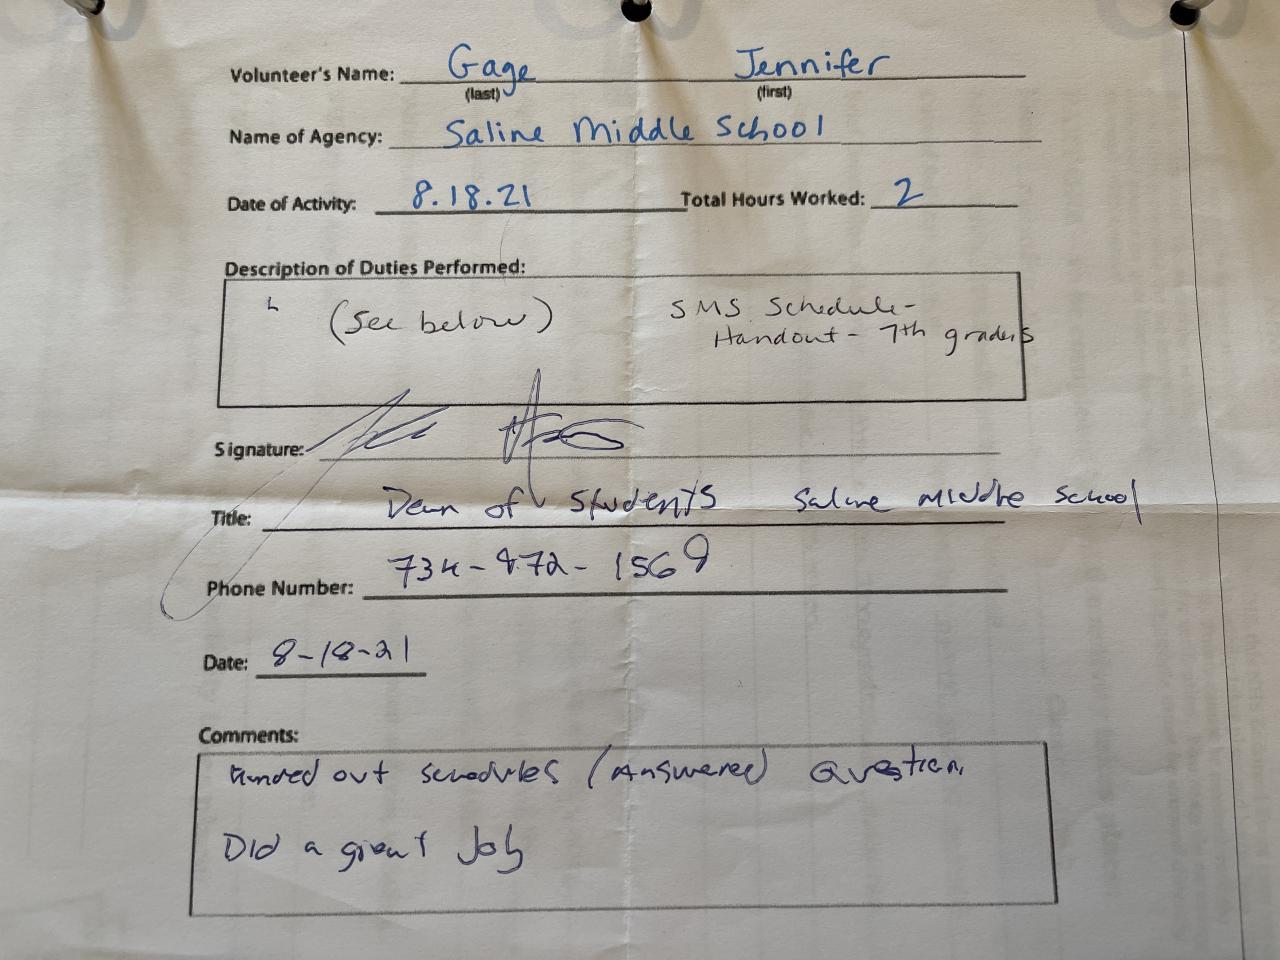 Volunteer's Name: Gage Jennifer
(last) (first)
Name of Agency: Saline Middle School
Date of Activity: 8.18.21 Total Hours Worked: 2
Description of Duties Performed:
(See below) SMS Schedule-
Handout - 7th graders
Signature:
Title: Dean of Students Saline Middle School
Phone Number: 734-472-1569
Date: 8-18-21
Comments:
Handed out schedules (Answered) Question
Did a great Job